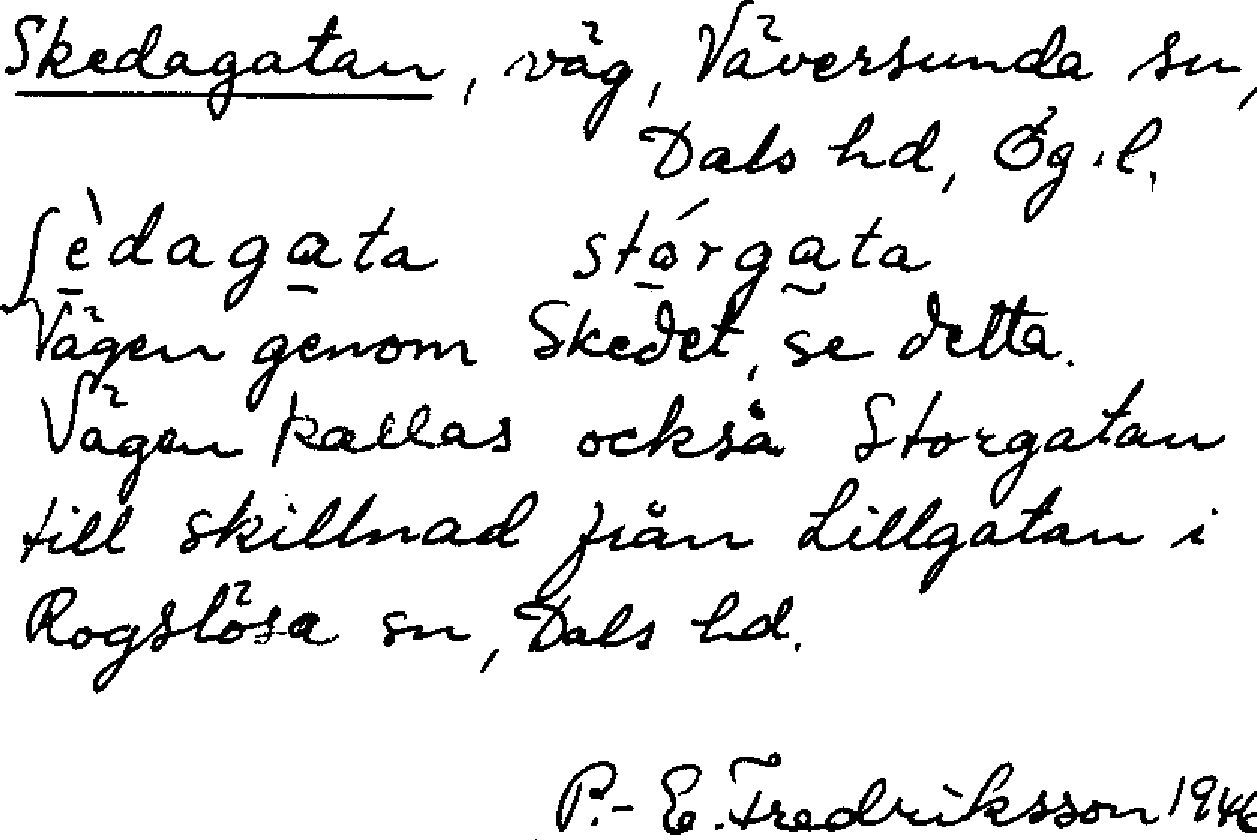 Skedagatan, väg, Väversunda sn,
Dals hd, Ög.l.
ʃèdagata stórgata
Vägen genom Skedet, se detta.
Vägen kallas också Storgatan
till skillnad från Lillgatan i
Rogslösa sn, Dals hd.
P.-E. Fredriksson 1946